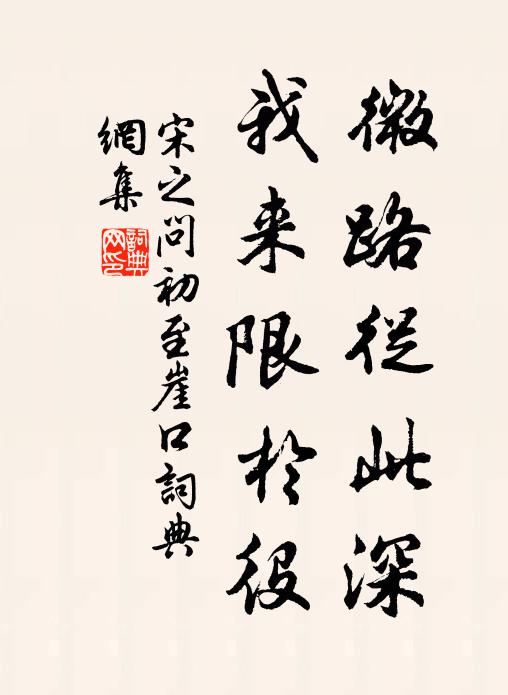 微路從此深
我来限於役
宋之问初至崖口詞典
網集
詞典
网印